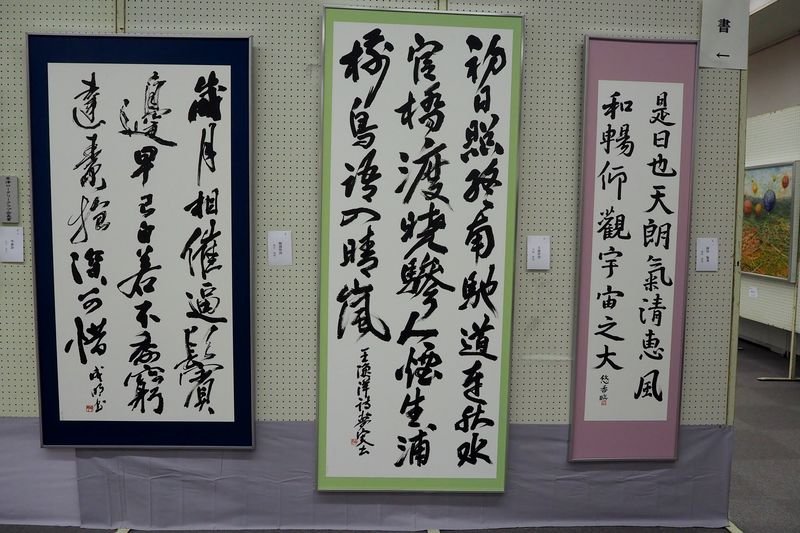 書
←
是日也天朗氣清恵風
和暢仰觀宇宙之大
初日照終南馳道連秋水
官橋渡曉驂人煙生浦
樹鳥語入晴嵐
王漁洋詩
歳月相催逼鬢
邊早已白若不委窮
達素抱深可惜